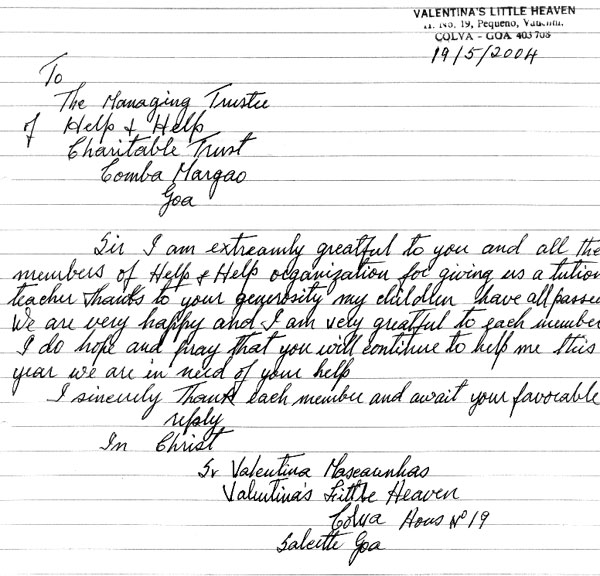 VALENTINA'S LITTLE HEAVEN
H. No. 19, Pequeno,
COLVA - GOA 403 708
19/5/2004
To
The Managing Trustee
of Help & Help
Charitable Trust
Comba Margao
Goa
Sir I am extreamly greatful to you and all the
members of Help & Help organization for giving us a tution
teacher Thanks to your generosity my children have all passed
We are very happy and I am very greatful to each member
I do hope and pray that you will continue to help me this
year we are in need of your help
I sincerely Thank each member and await your favorable
reply
In Christ
Sr Valentina Mascarenhas
Valentina's Little Heaven
Colva Hous Nº 19
Salcette Goa